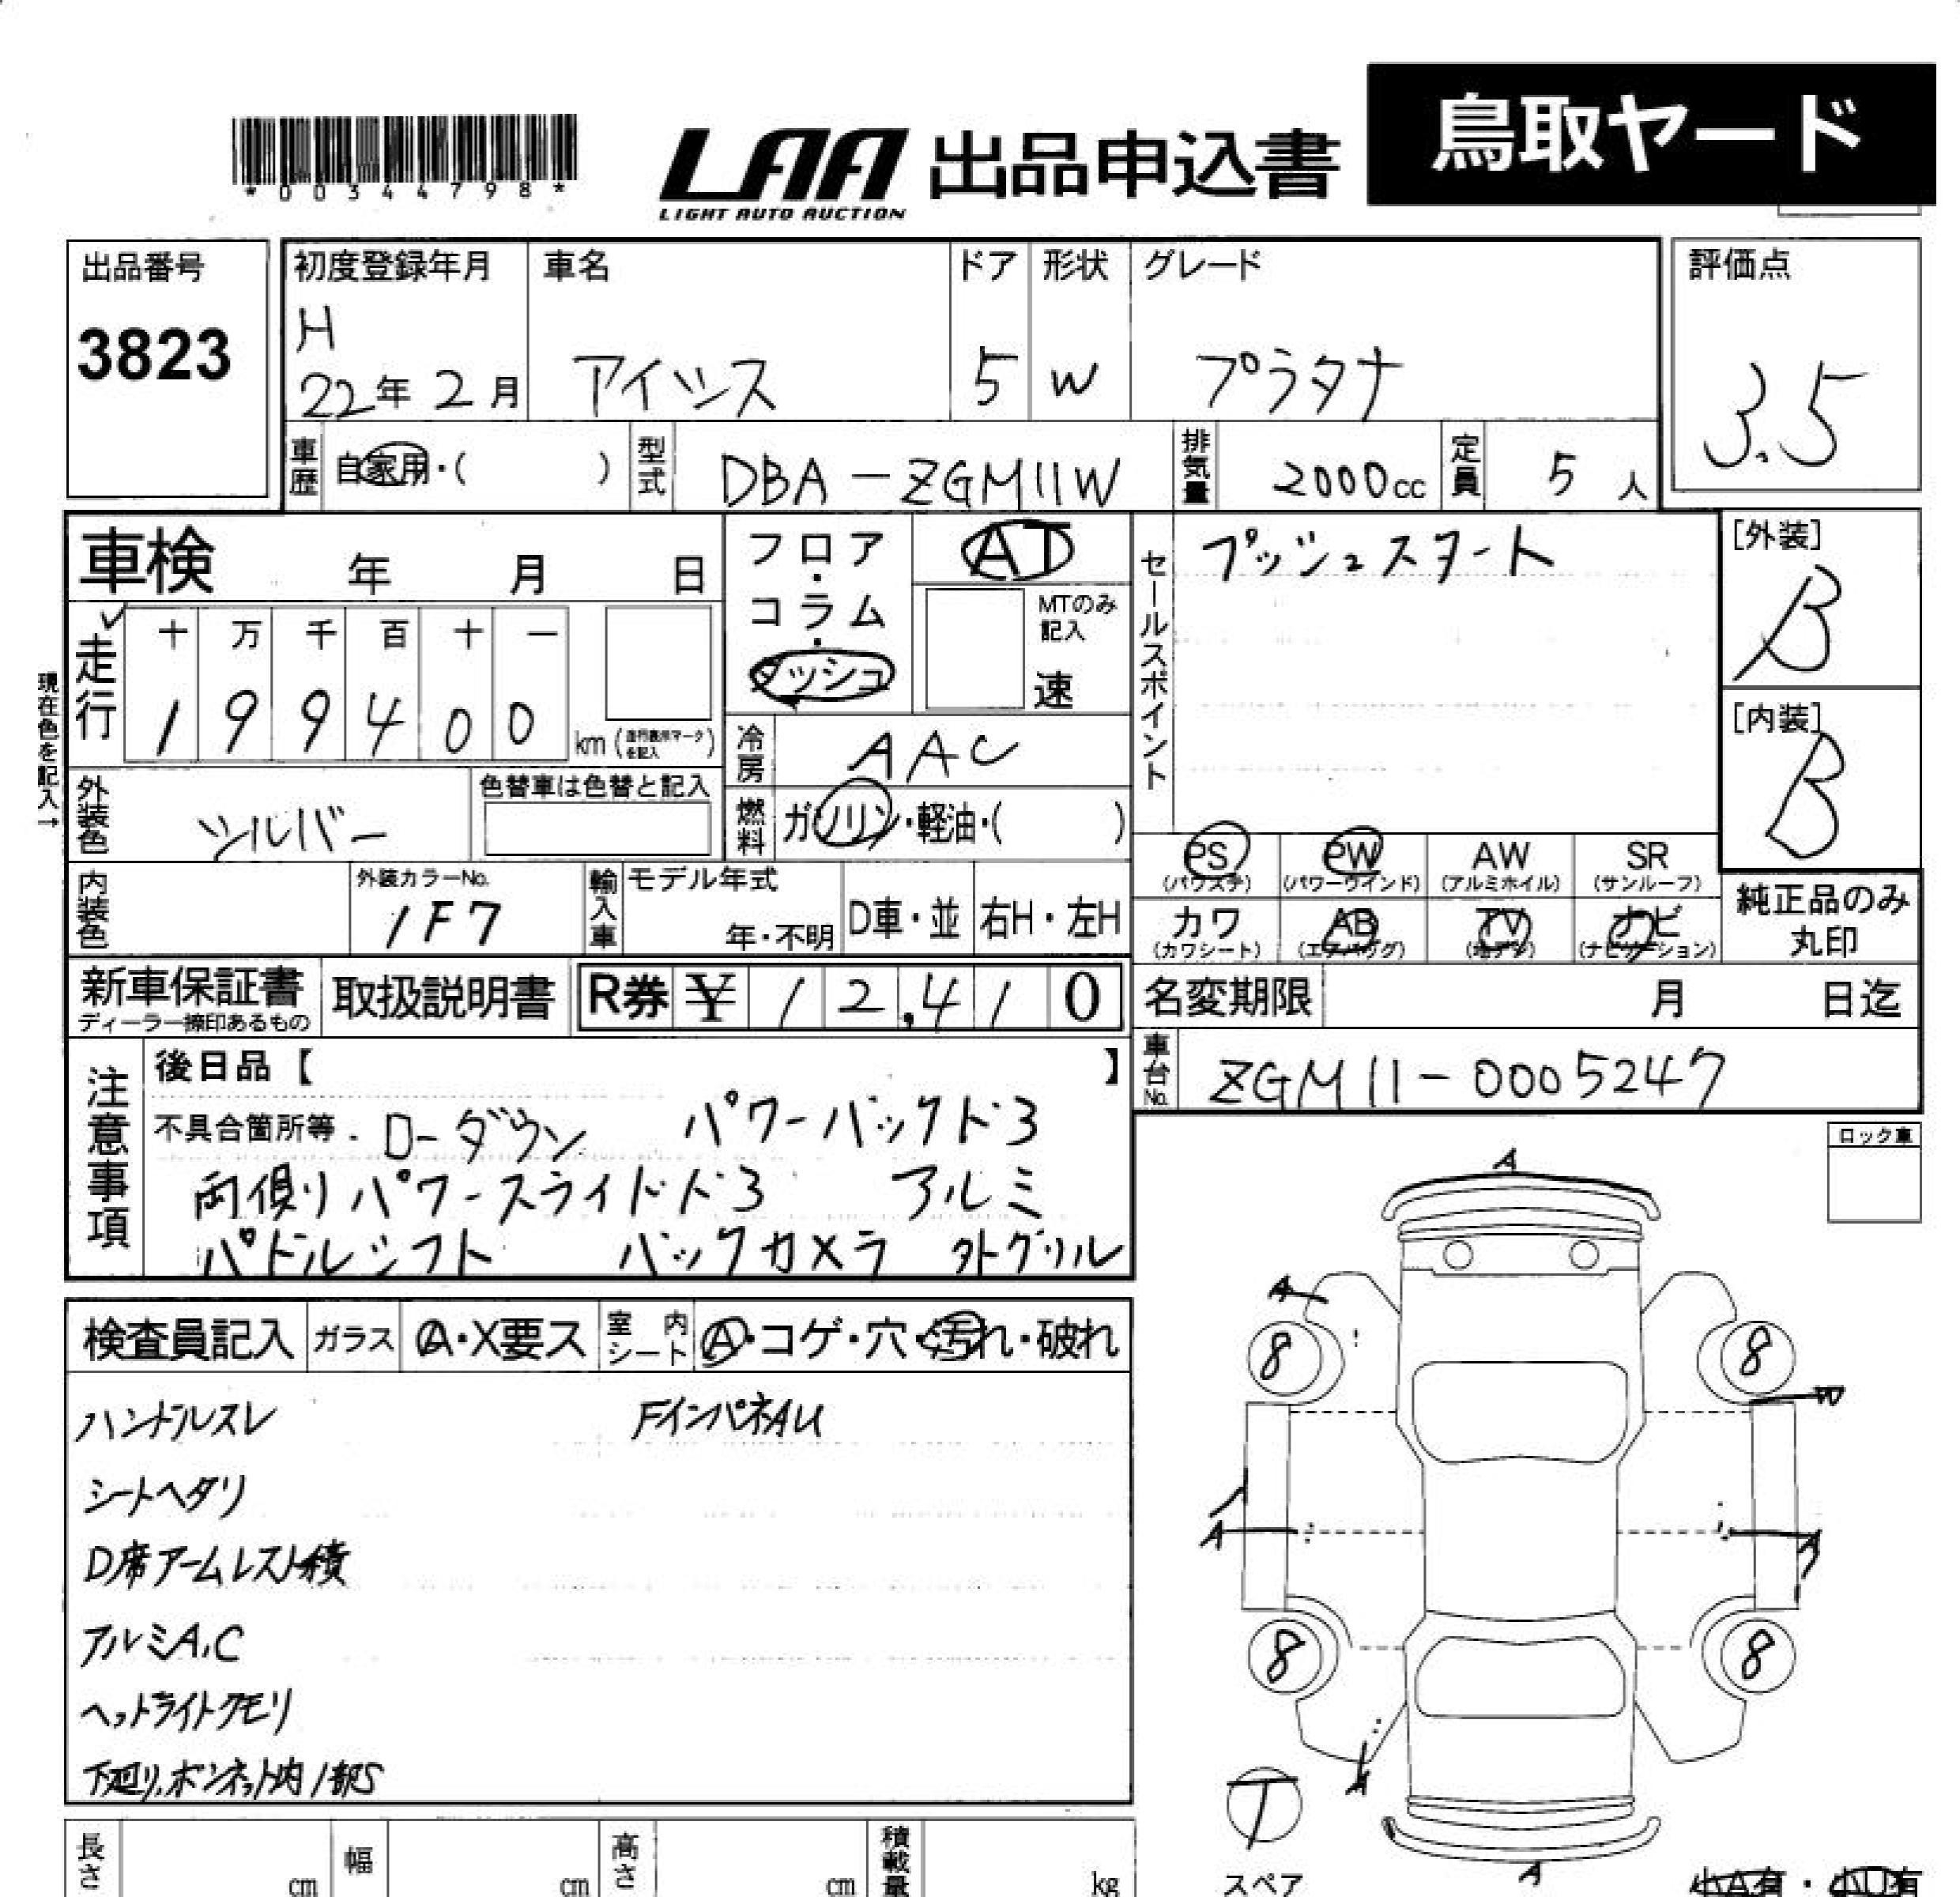 鳥取ヤード
*00344798*
LAA 出品申込書
LIGHT AUTO AUCTION
出品番号
3823
初度登録年月
H
22年 2月
車名
アイシス
ドア
5
形状
W
グレード
プラタナ
評価点
3.5
車歴
自家用・( )
型式
DBA-ZGM11W
排気量
2000cc
定員
5人
車検 年 月 日
フロア・コラム・ダッシュ
AT
MTのみ記入
速
セールスポイント
プッシュスタート
[外装]
B
[内装]
B
現在色を記入→
走行
十 万 千 百 十 一
1 9 9 4 0 0 km (走行表示マークを記入)
冷房
AAC
燃料
ガソリン・軽油・( )
外装色
シルバー
色替車は色替と記入
内装色
外装カラーNo.
1F7
輸入車
モデル年式
年・不明
D車・並
右H・左H
PS
(パワステ)
PW
(パワーウインド)
AW
(アルミホイル)
SR
(サンルーフ)
カワ
(カワシート)
AB
(エアバッグ)
TV
(地デジ)
ナビ
(ナビゲーション)
純正品のみ
丸印
新車保証書
ディーラー捺印あるもの
取扱説明書
R券 ¥ 12,410
名変期限 月 日迄
車台No.
ZGM11-0005247
注意事項
後日品【 】
不具合箇所等 . ローダウン パワーバックド3
両側リパワースライドド3 アルミ
パドルシフト バックカメラ 外グリル
ロック車
検査員記入
ガラス
A・X要ス
室内シート
A・コゲ・穴・汚れ・破れ
ハンドルスレ FインパネAU
シートヘタリ
D席アームレスト積
アルミA,C
ヘットライトクモリ
下廻り,ボンネット内1部S
A
A
8 8
W
A
A
8 8
T
スペア
A
小A有・小U有
長さ cm
幅 cm
高さ cm
積載量 kg